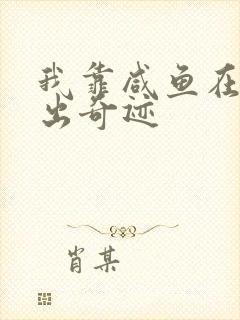 我靠咸鱼在
出奇迹
肖某